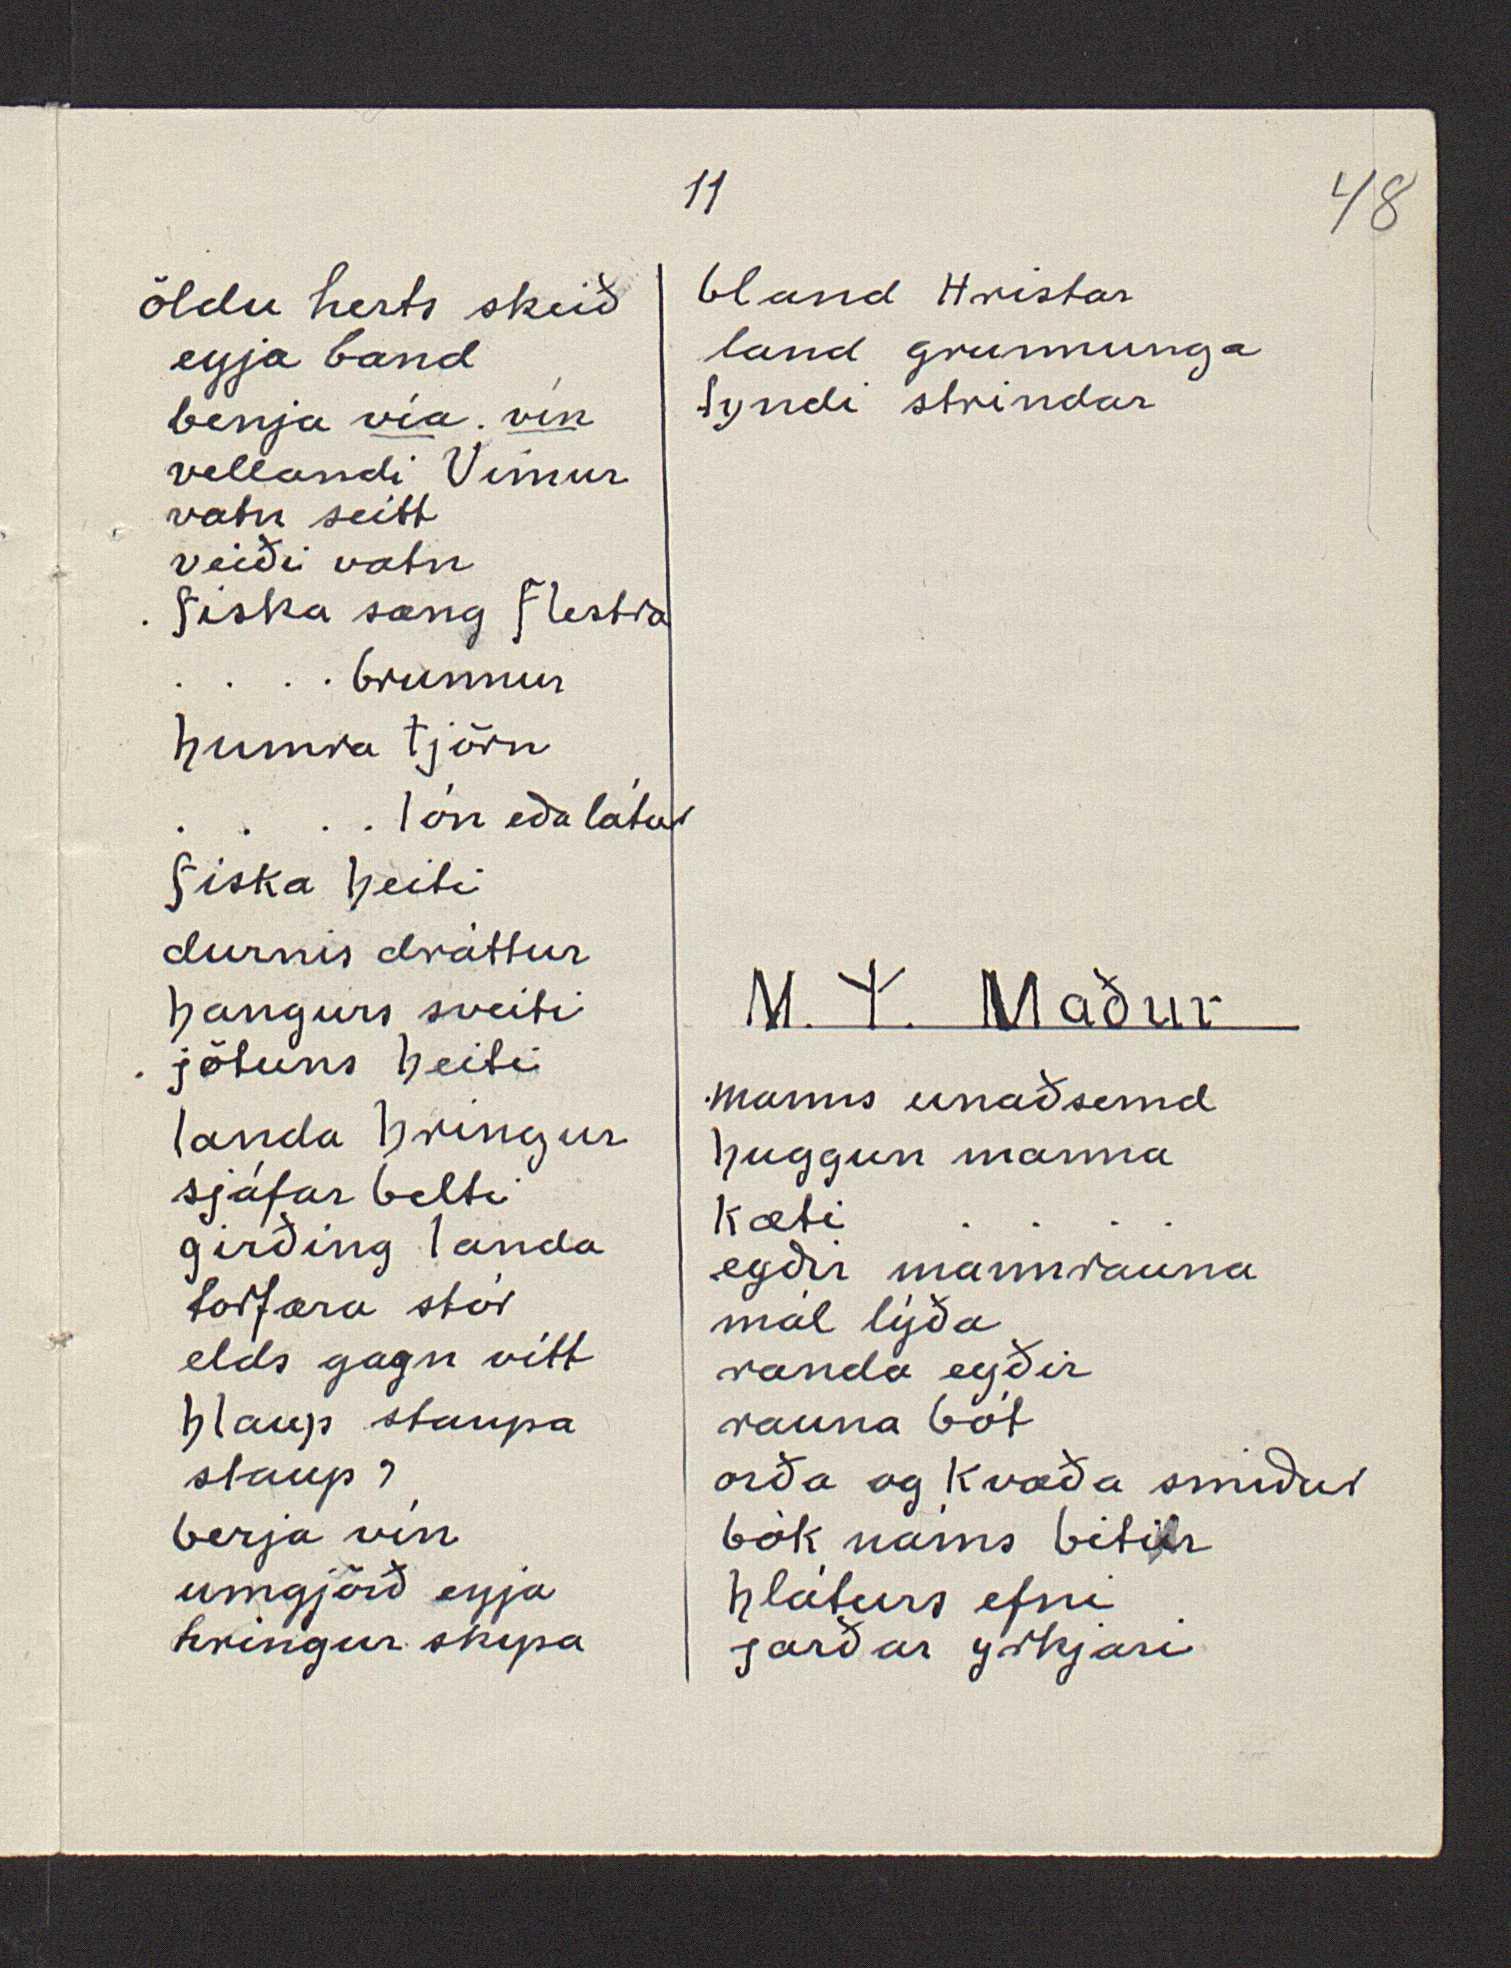 11
48
öldu herts skeið
eyja band
benja vía. vín
vellandi Vimur
vatn seitt
veiði vatn
. fiska sæng flestra
. . . . brunnur
humra tjörn
. . . . lón eða látur
fiska heiti
durnis dráttur
hangurs sveiti
. jötuns heiti
landa hringur
sjáfar belti
girðing landa
torfæra stór
elds gagn vítt
hlaup staupa
staup?
berja vín
umgjörð eyja
hringur skipa
bland Hristar
land grunnunga
tyndi strindar
M. ᛉ. Maður
.manns unaðsemd
huggun manna
Kæti . . . .
eyðir mannrauna
mál lýða
randa eyðir
rauna bót
orða og Kvæða smiður
bók náms bitur
hláturs efni
jarðar yrkjari